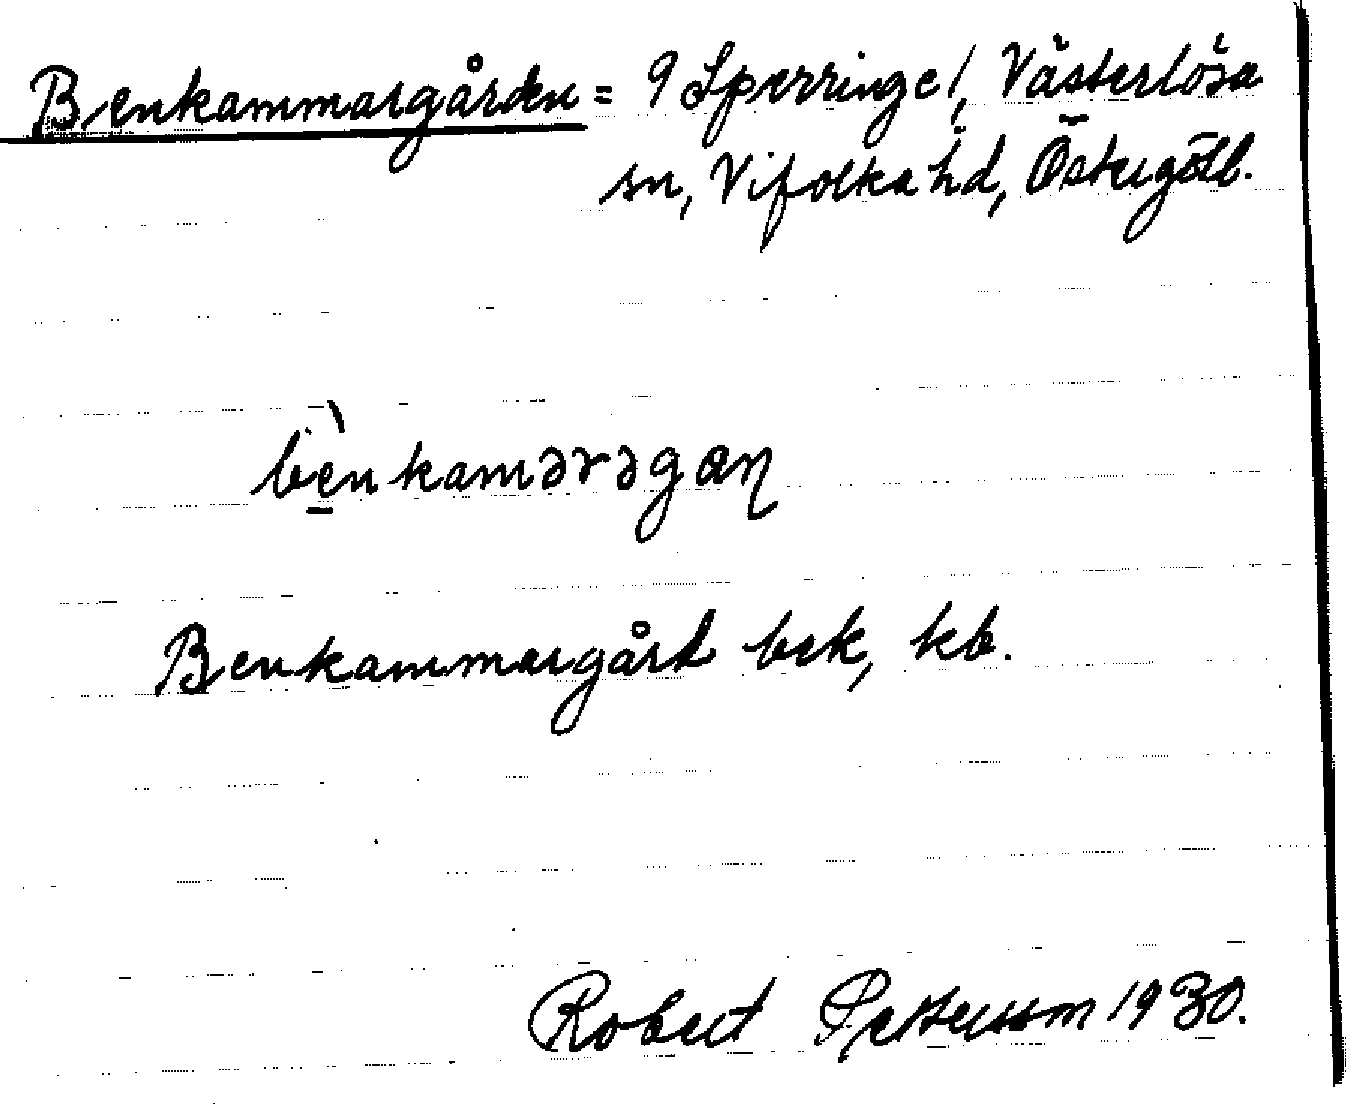 Benkammargården = 9 Sperringe /, Västerlösa
sn, Vifolka hd, Östergötl.
bènkamərəgaɳ
Benkammargård bek, kb.
Robert Pettersson 1930.